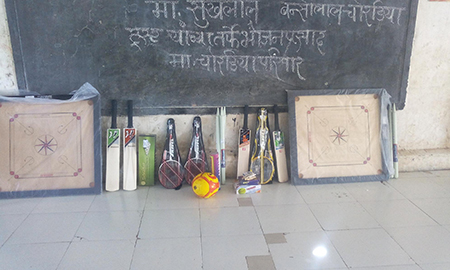 मा. सुखलाल बन्सीलाल चोरडिया
ट्रस्ट यांच्या तर्फे भोजन प्रसाद
मा. चोरडिया परिवार